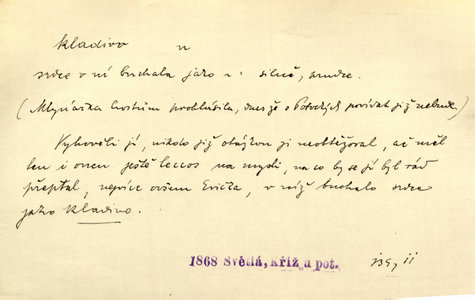 kladivo n
srdce v ní buchalo jako n: silně, prudce.
(Mlynářka hostům prohlásila, dnes že o Potockých povídat již nebude)
Vyhověli jí, nikdo již otázkou ji neobtěžoval, ač měl
ten i onen ještě leccos na mysli, na co by se jí byl rád
přeptal, nejvíce ovšem Evička, v níž buchalo srdce
jako kladivo.
1868 Světlá, kříž u pot. 139, II